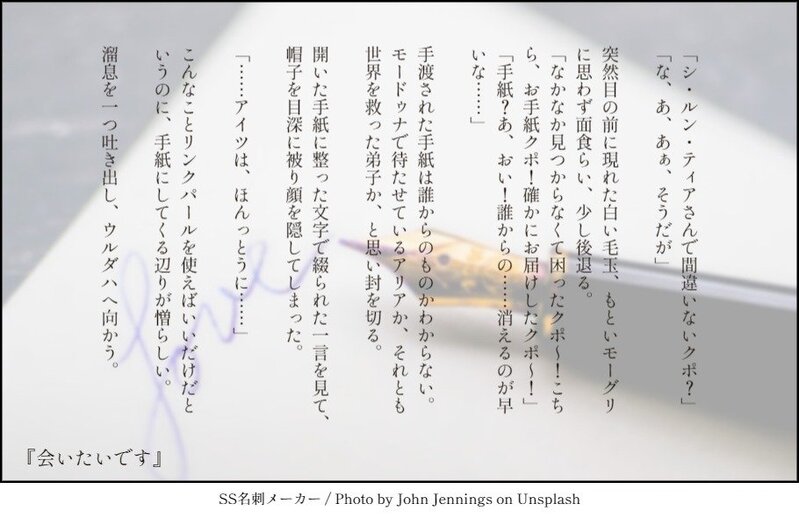 「シ・ルン・ティアさんで間違いないクポ？」
「な、あ、あぁ、そうだが」
突然目の前に現れた白い毛玉、もといモーグリ
に思わず面食らい、少し後退る。
「なかなか見つからなくて困ったクポ～！こち
ら、お手紙クポ！確かにお届けしたクポ～！」
「手紙？あ、おい！誰からの……消えるのが早
いな……」
手渡された手紙は誰からのものかわからない。
モードゥナで待たせているアリアか、それとも
世界を救った弟子か、と思い封を切る。
開いた手紙に整った文字で綴られた一言を見て、
帽子を目深に被り顔を隠してしまった。
「……アイツは、ほんっとうに……」
こんなことリンクパールを使えばいいだけだと
いうのに、手紙にしてくる辺りが憎らしい。
溜息を一つ吐き出し、ウルダハへ向かう。
『会いたいです』
love
SS名刺メーカー / Photo by John Jennings on Unsplash